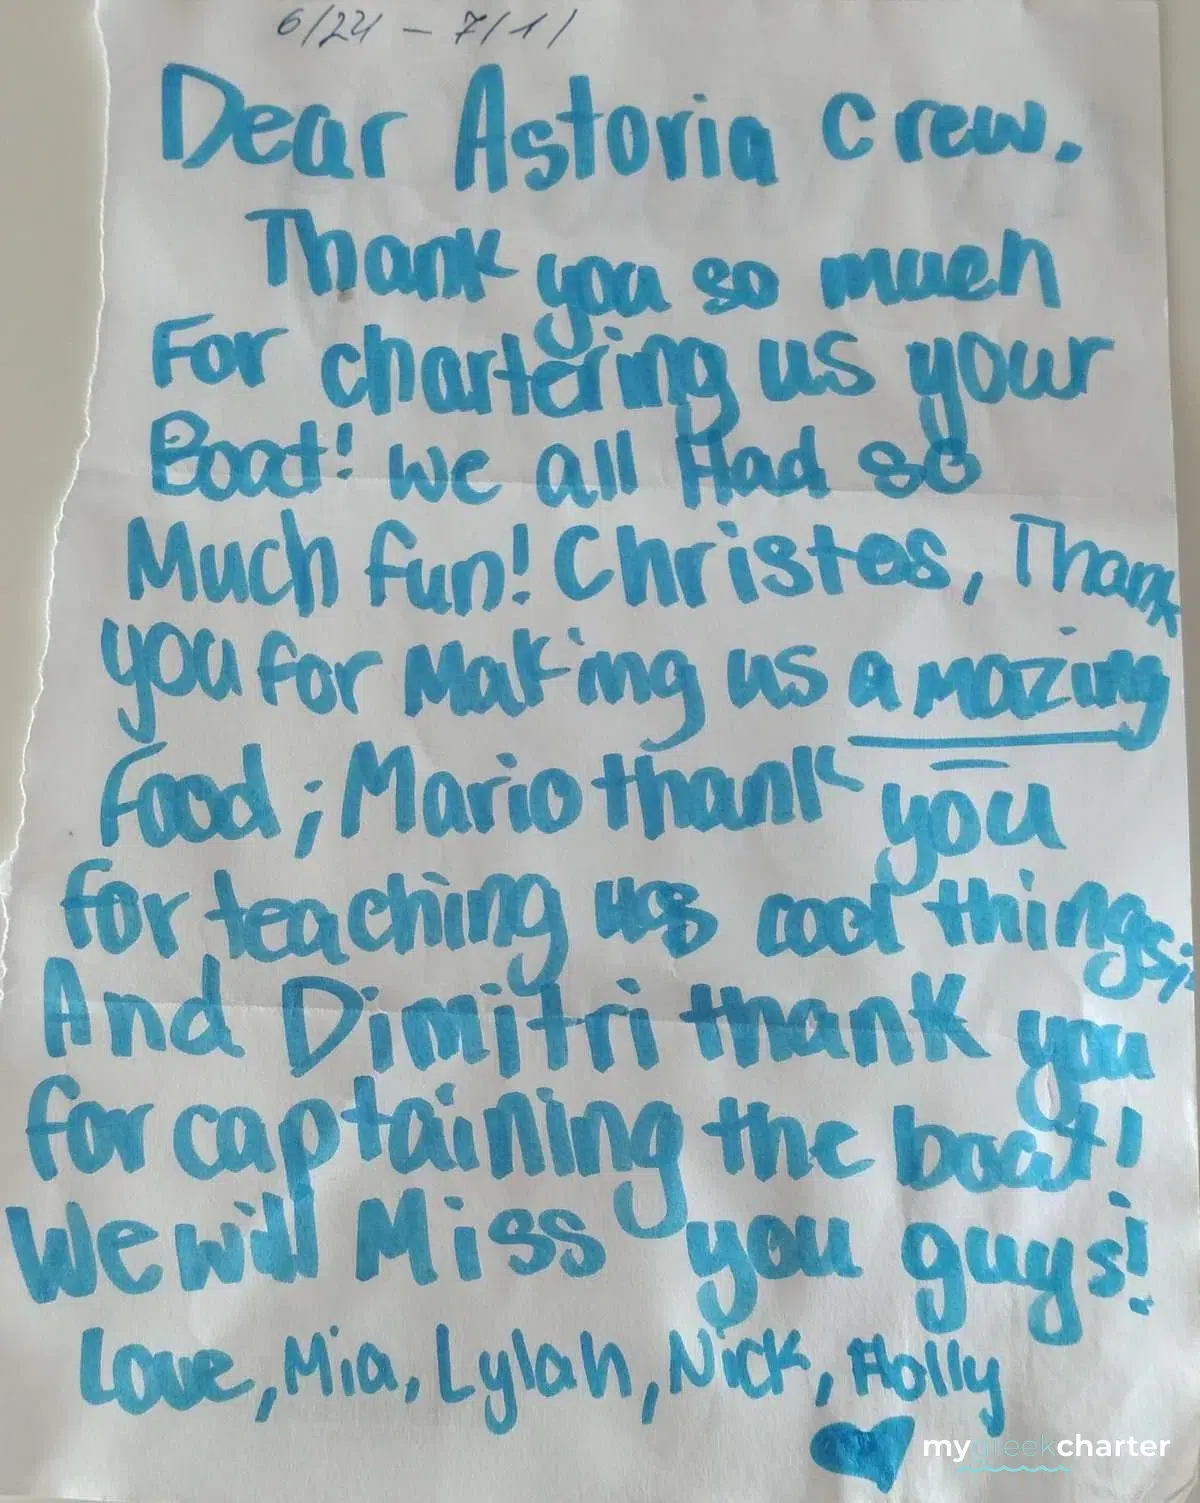 6/24 - 7/1/
Dear Astoria crew.
Thank you so much
For chartering us your
Boat! We all Had so
Much fun! Christos, Thank
you for Making us amazing
Food; Mario thank you
for teaching us cool things;
And Dimitri thank you
for captaining the boat!
We will Miss you guys!
Love, Mia, Lylah, Nick, Holly
mygreekcharter